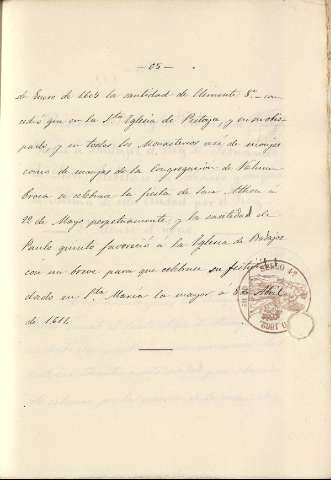 - 05 -
de Enero de 1604 la santidad de Clemente 8º con
cedió que en la Sta Iglesia de Badajoz, y en su obis
pado, y en todos los Monasterios asi de monjes
como de monjas de la Congregacion de Valum
brosa se celebrase la fiesta de San Athon à
22 de Mayo perpetuamente, y la santidad de
Paulo quinto favoreció à la Iglesia de Badajoz
con un breve para que celebrase su festivi
dado en Sta Maria la mayor à 8 de Abril
de 1611.